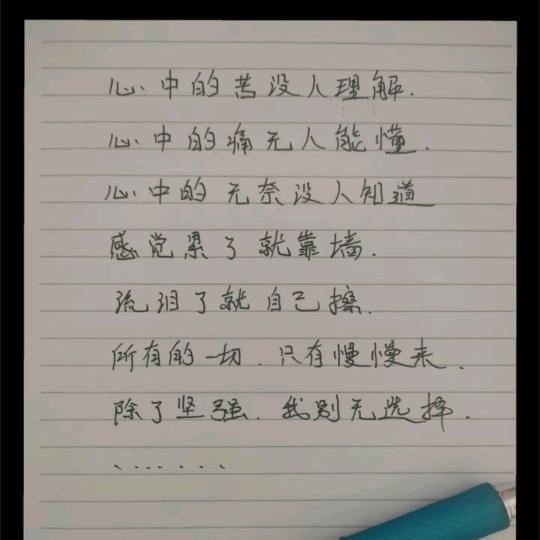 心中的苦没人理解.
心中的痛无人能懂.
心中的无奈没人知道
感觉累了就靠墙.
流泪了就自己擦.
所有的一切.只有慢慢来.
除了坚强.我别无选择.
.......